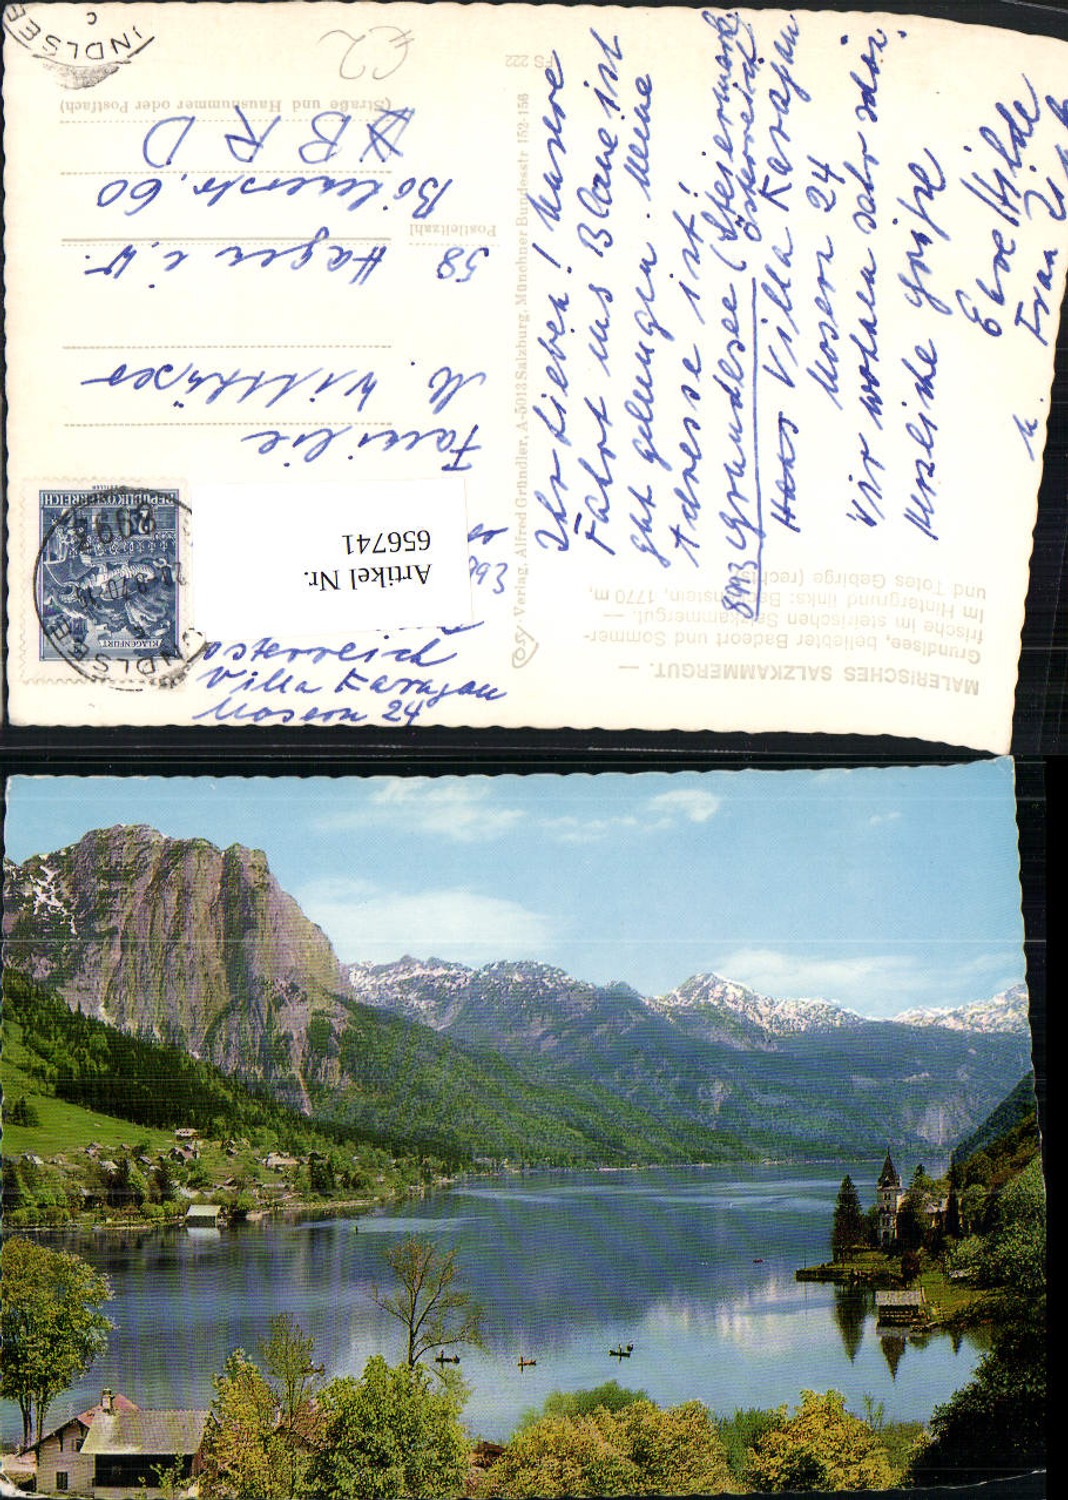 MALERISCHES SALZKAMMERGUT. —
Grundlsee, beliebter Badeort und Sommer-
frische im steirischen Salzkammergut. —
Im Hintergrund links: Backenstein, 1770 m,
und Totes Gebirge (rechts)
Ihr Lieben! Unsere
Fahrt ins Blaue ist
gut gelungen. Meine
Adresse ist!
8993 Grundlsee (Steiermark
Österreich
Haus Villa Karajan
Mosern 24
Wir wohnen sehr schön.
Herzliche Grüße
Eure Hilde
u. Frau
Verlag Alfred Gründler, A-5013 Salzburg, Münchner Bundesstr 152-156
FS 222
Österreich
Villa Karajan
Mosern 24
Artikel Nr.
656741
REPUBLIK ÖSTERREICH
KLAGENFURT
8993
NDLSEE
Familie
M.
58 Hagen i. W.
Postleitzahl
60
BRD
(Straße und Hausnummer oder Postfach)
€2
NDLSEE
c